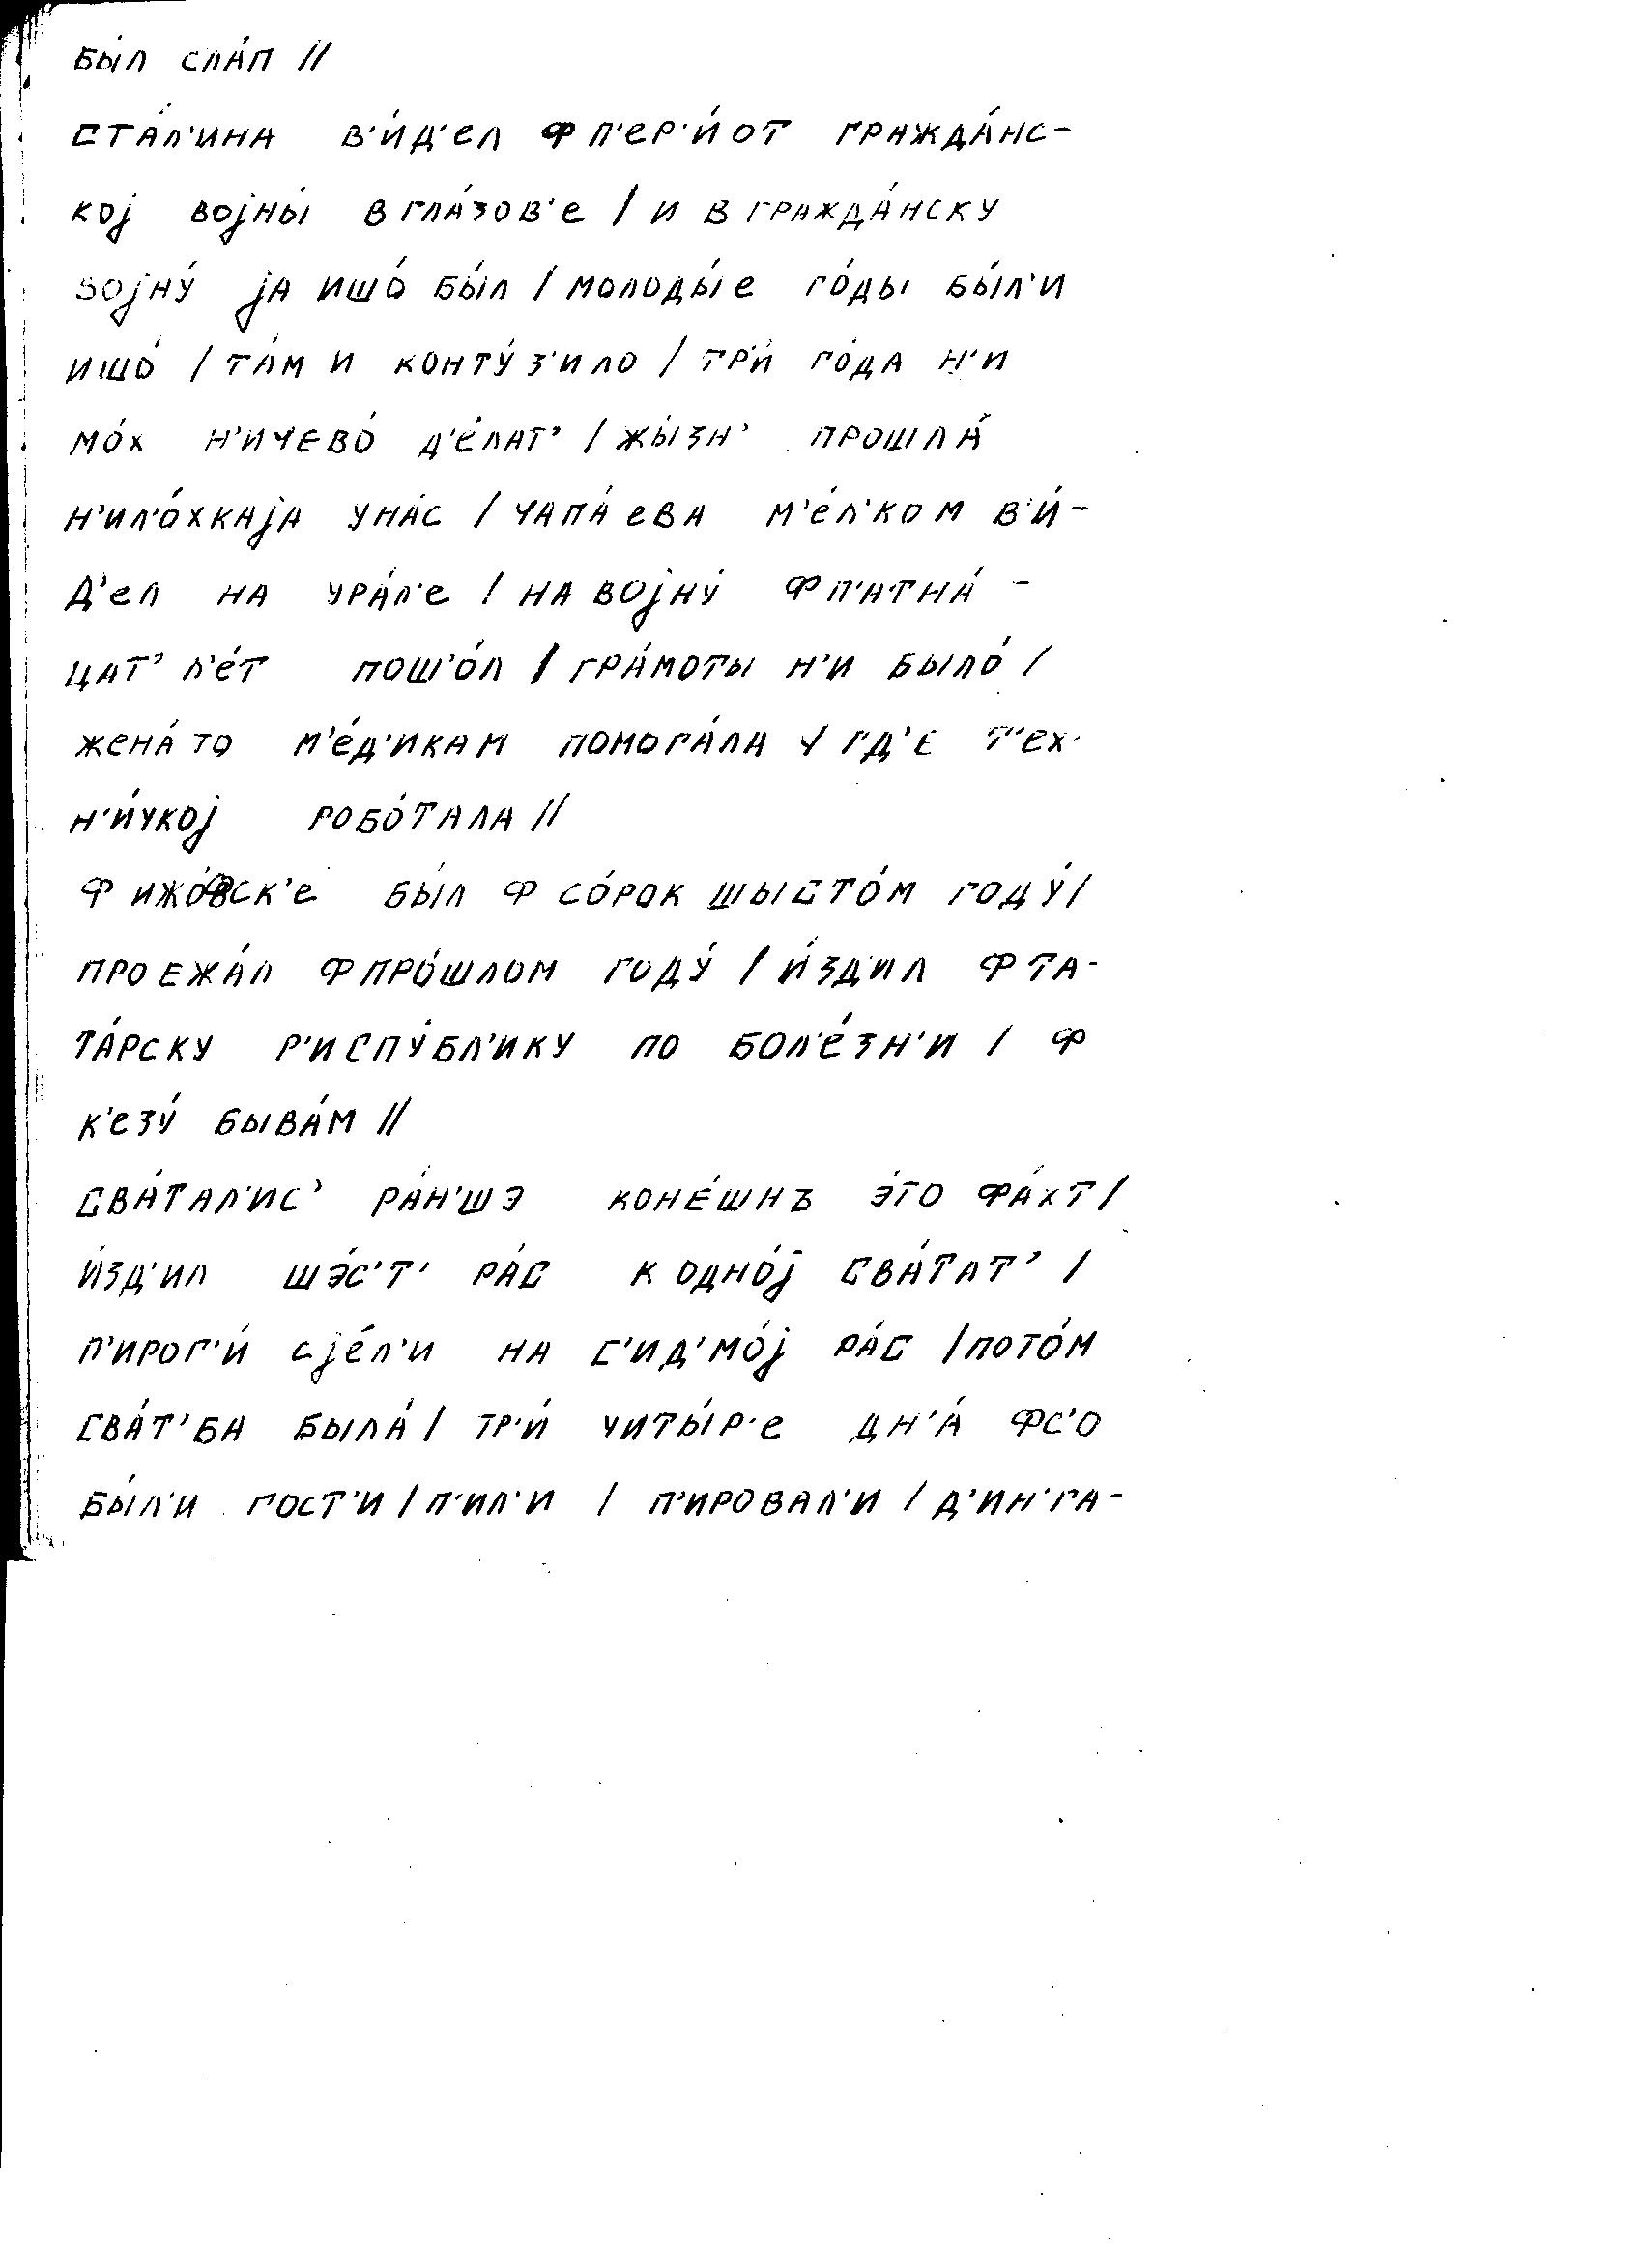 бы́л сла́п //
ста́л'ина в'и́д'ел ф п'ер'и́от гражда́нс-
кој војны́ в гла́зов'е / и в гражда́нску
војну́ ја ишо́ бы́л / молоды́е го́ды бы́л'и
ишо́ / та́м и конту́з'ило / тр'и́ го́да н'и
мо́х н'ичево́ д'е́лат' / жы́зн' прошла́
н'ил'о́хкаја у на́с / чапа́ева м'е́л'ком в'и́-
д'ел на ура́л'е / на војну́ ф п'атна́-
цат' л'е́т пош'о́л / гра́моты н'и было́ /
жена́ то м'е́д'икам помога́ла / гд'е т'ех-
н'и́чкој робо́тала //
ф ижо́фск'е бы́л ф со́рок шысто́м году́ /
проежа́л ф про́шлом году́ / и́зд'ил ф та-
та́рску р'испу́бл'ику по бол'е́зн'и / ф
к'езу́ быва́м //
сва́тал'ис' ра́н'шэ коне́шнъ э́то фа́хт /
и́зд'ил шэ́с'т' ра́с к одно́ј сва́тат' /
п'ирог'и́ сје́л'и на с'ид'мо́ј ра́с / пото́м
сва́т'ба была́ / тр'и́ читы́р'е дн'а́ фс'о
бы́л'и гост'и / п'ил'и / п'ировал'и / д'ин'га-